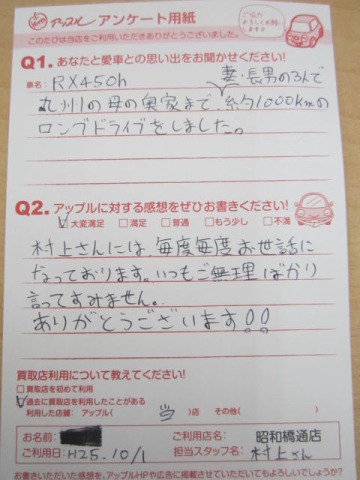 アップル アンケート用紙
ご協力よろしくお願いします♪
このたびは当店をご利用いただきありがとうございました。
Q1. あなたと愛車との思い出をお聞かせください!
車名: RX450h 妻・長男の3人で
九州の母の実家まで、約1000kmの
ロングドライブをしました。
Q2. アップルに対する感想をぜひお書きください!
□大変満足 □満足 □普通 □もう少し □不満
村上さんには、毎度毎度お世話に
なっております。いつもご無理ばかり
言ってすみません。
ありがとうございます!!
買取店利用について教えてください!
□買取店を初めて利用
□過去に買取店を利用したことがある
利用した店舗: アップル( 当 )店 その他( )
お名前: ご利用店名: 昭和橋通店
ご利用日: H25.10/1 担当スタッフ名: 村上さん
お書きいただいた感想を、アップルHPや広告に掲載させていただいてもよろしいでしょうか?